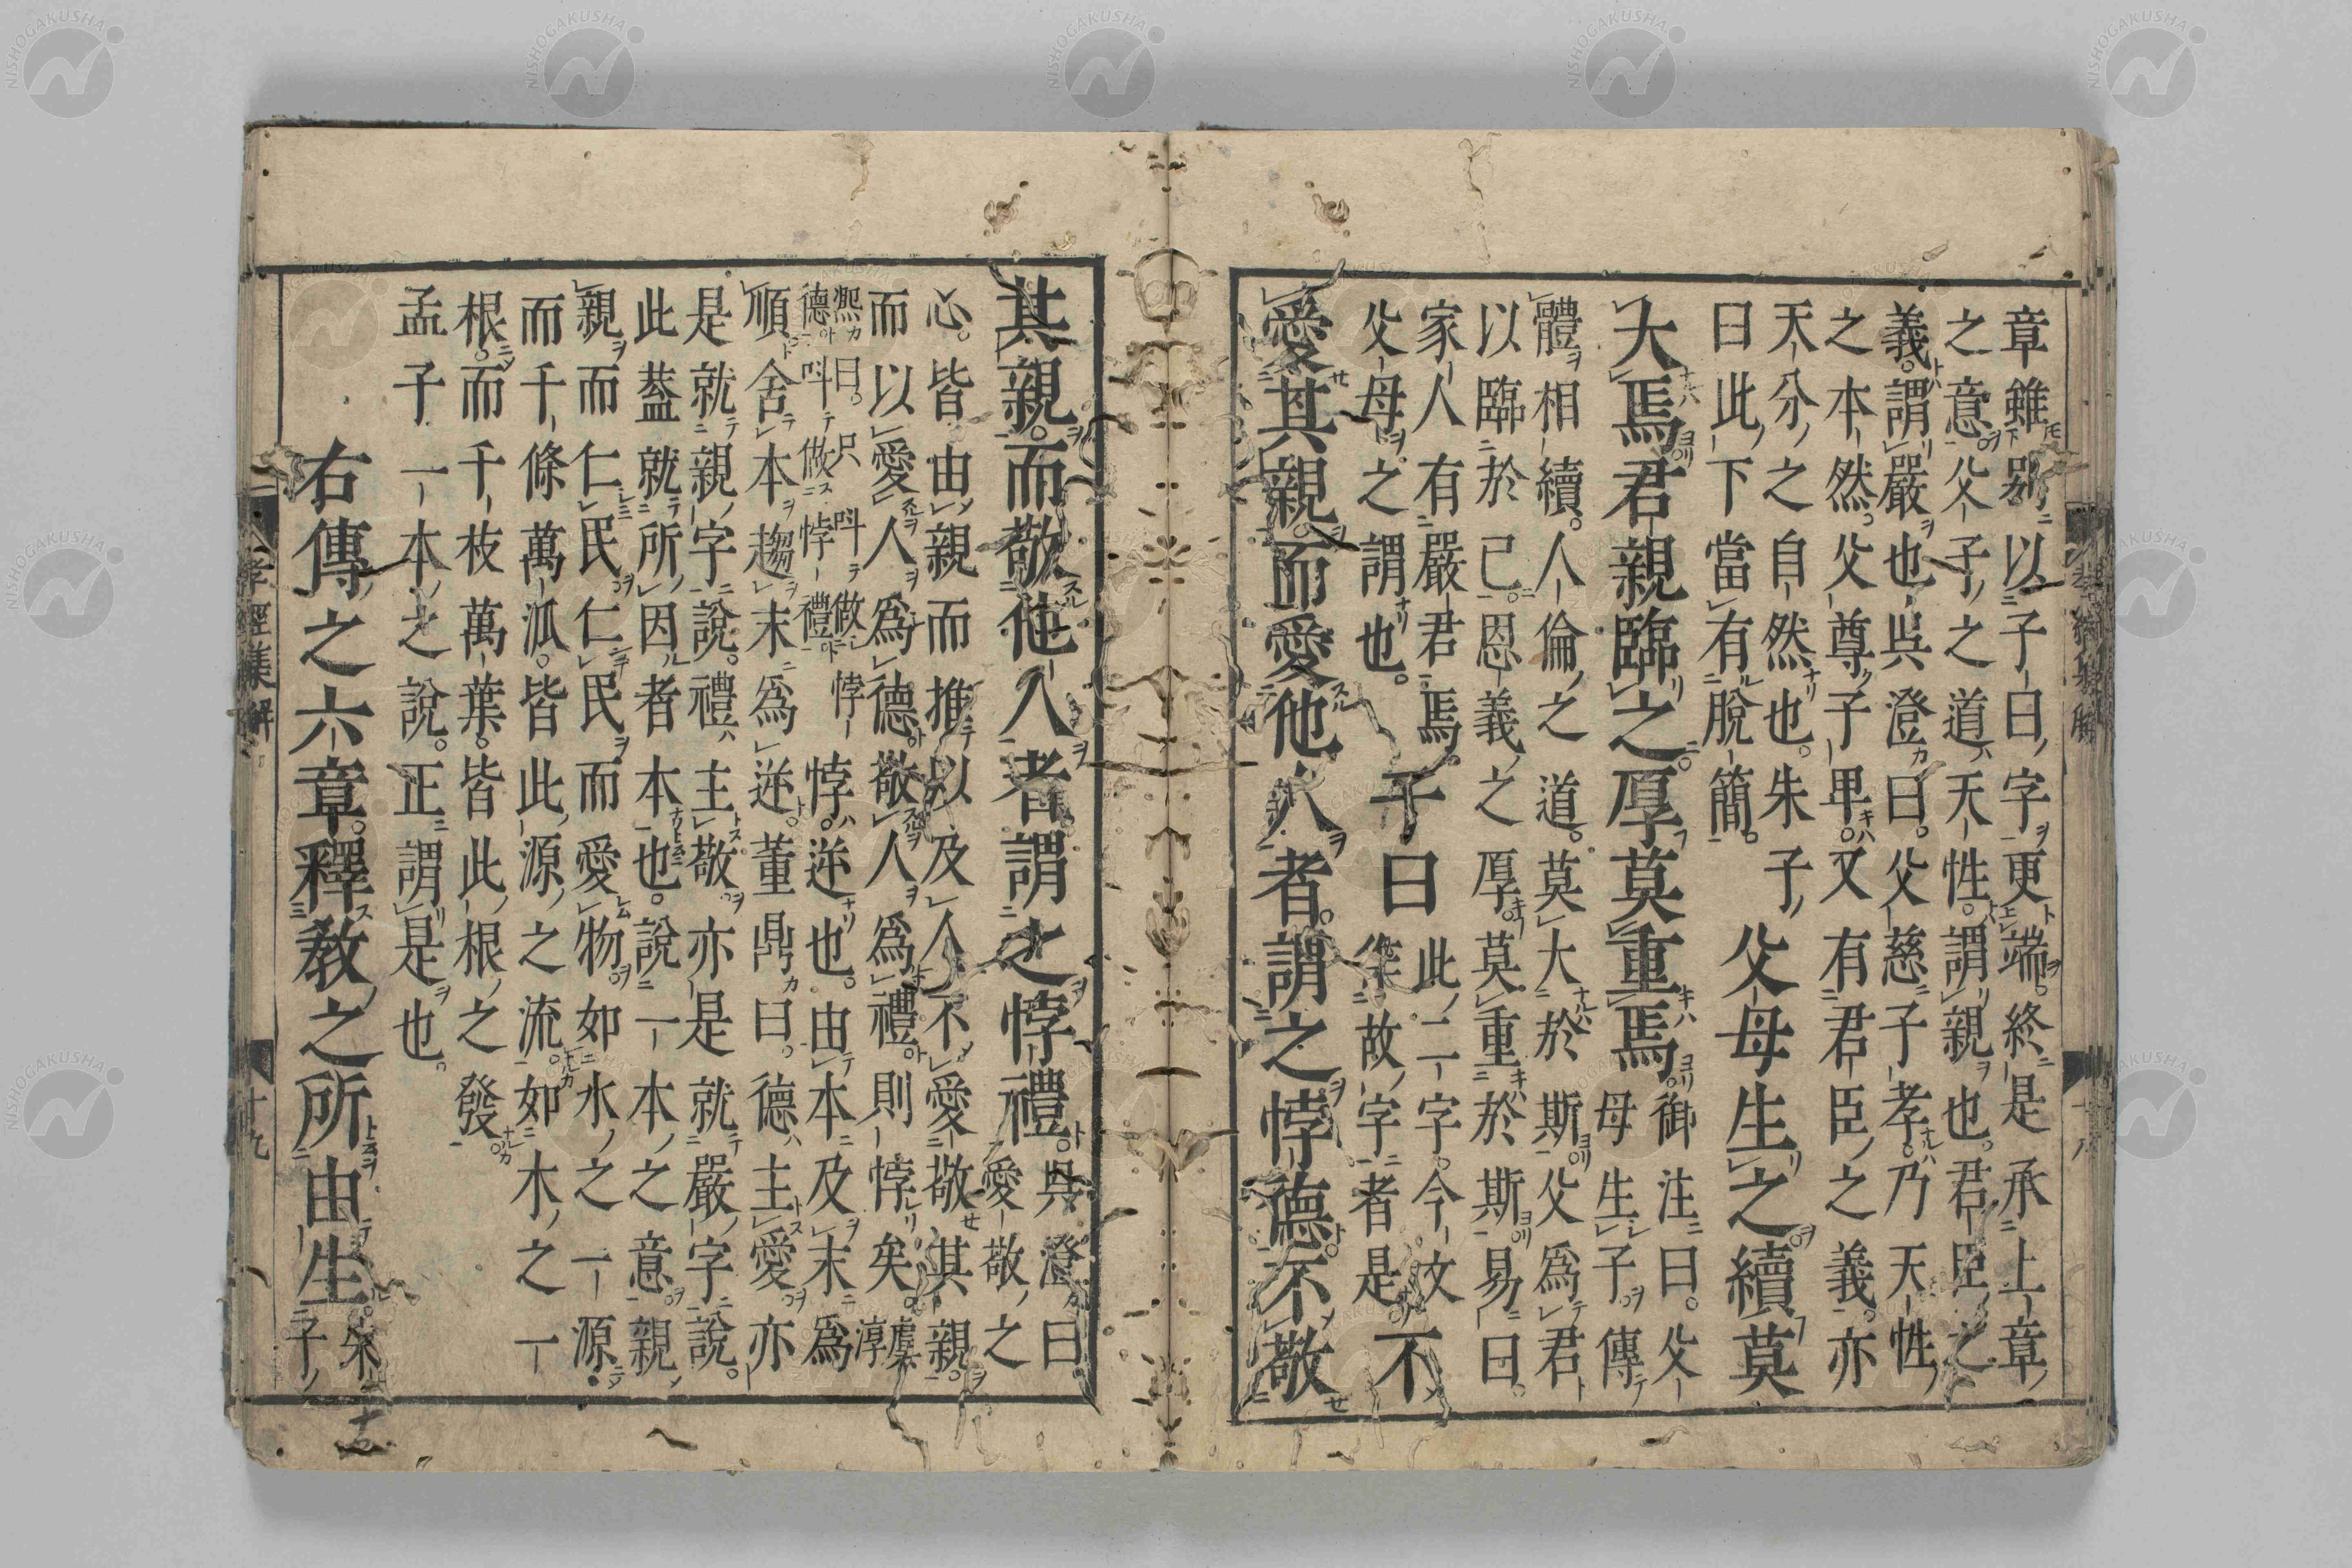 章雖別以子曰字更端。終是承上章
之意父子之道天性。謂親也。君臣之
義。謂嚴也吳澄曰。父慈子孝。乃天性
之本然。父尊子卑。又有君臣之義。亦
天分之自然也。朱子
曰此下當有脫簡。
父母生之續莫
大焉君親臨之。厚莫重焉。
御注曰。父
母生子傳
體相續。人倫之道。莫大於斯父為君
以臨於己。恩義之厚。莫重於斯易曰。
家人有嚴君焉
父母之謂也。
子曰
此二字。今文
作故字者是
不
愛其親。而愛他人者。謂之悖德。不敬
孝經集解
十八
其親。而敬他人者。謂之悖禮。
吳澄曰
愛敬之
心。皆由親而推以及人不愛敬其親。
而以愛人為德。敬人為禮。則悖矣。
虞
淳
熙曰。只呌做悖
德。呌做悖禮
悖。逆也。由本及末為
順舍本趨末為逆。董鼎曰。德主愛亦
是就親字說。禮主敬。亦是就嚴字說。
此蓋就所因者本也。說一本之意親
親而仁民仁民而愛物。如水之一源。
而千條萬派。皆此源之流。如木之一
根。而千枝萬葉。皆此根之發。
孟子一本之說。正謂是也。
右傳之六章。釋教之所由生。
朱
子
孝經集解
十九